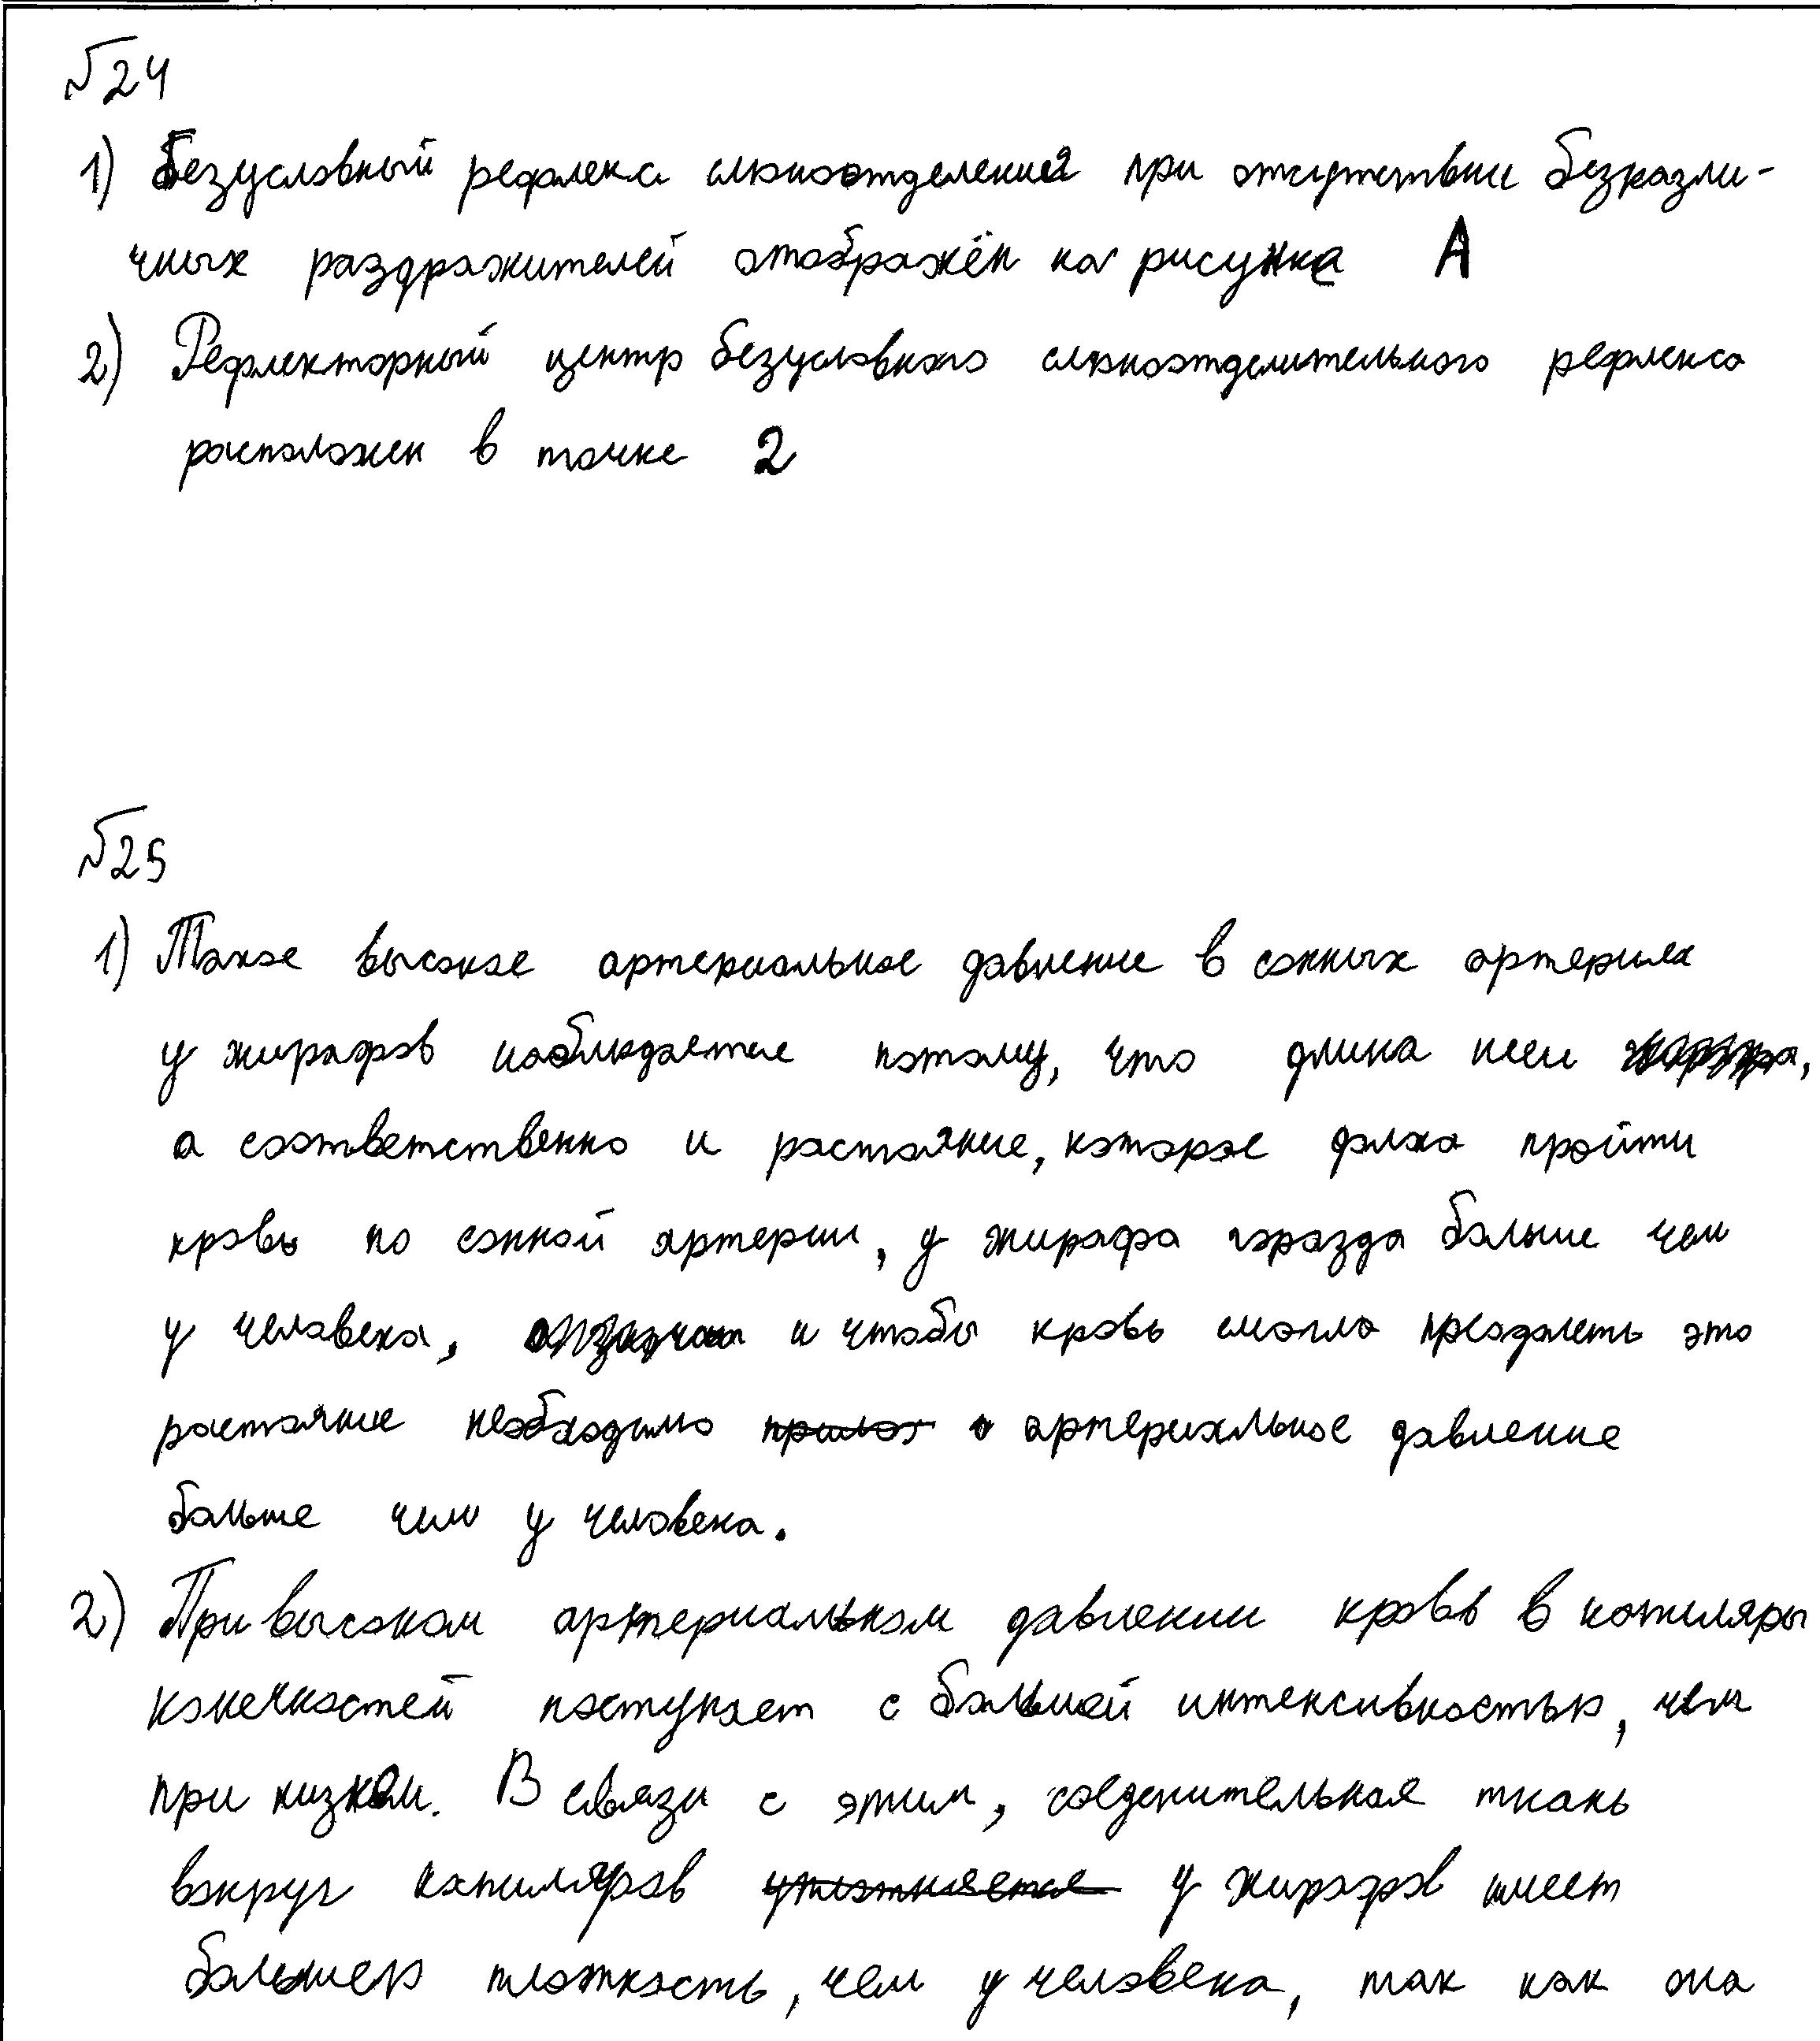 №24
1) Безусловный рефлекс слюноотделения при отсутствии безразли-
чных раздражителей отображён на рисунке А
2) Рефлекторный центр безусловного слюноотделительного рефлекса
расположен в точке 2
№25
1) Такое высокое артериальное давление в сонных артериях
у жирафов наблюдается потому, что длина шеи,
а соответственно и растояние, которое должа пройти
кровь по сонной артерии, у жирафа горазда больше чем
у человека, и чтобы кровь смогла преодолеть это
растояние необходимо артериальное давление
больше чем у человека.
2) При высоком артериальном давлении кровь в капиляры
конечностей поступает с большей интенсивностью, чем
при низком. В связи с этим, соеденительная ткань
вокруг капиляров уплотняется у жирафов имеет
большею плотность, чем у человека, так как она